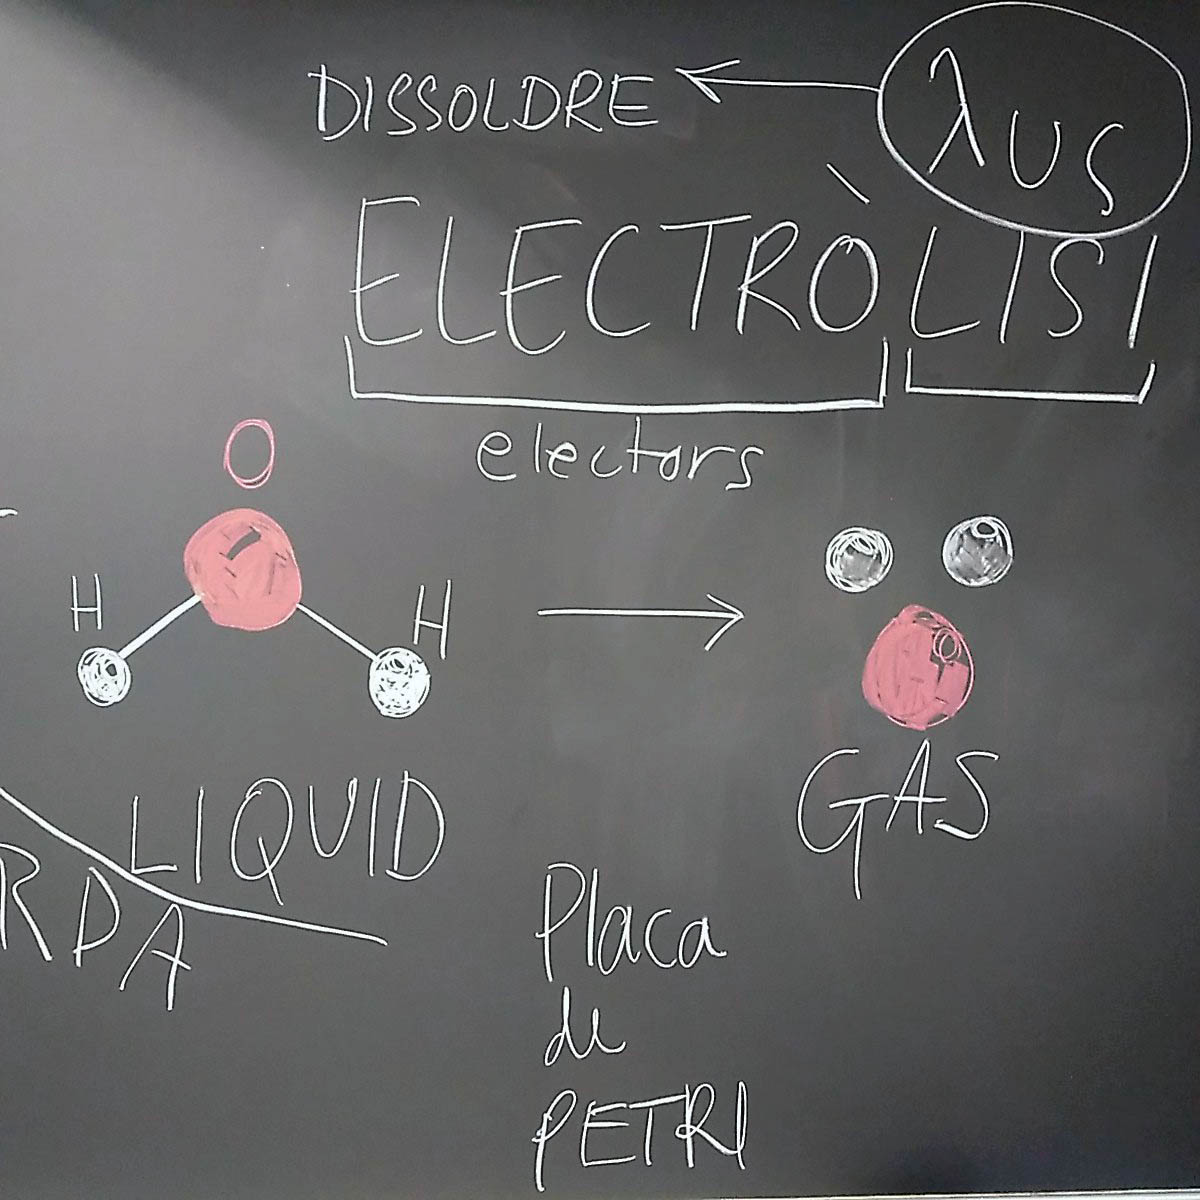 DISSOLDRE
λυς
ELECTRÒLISI
electors
O
H
H
LIQUID
GAS
RDA
Placa
de
PETRI